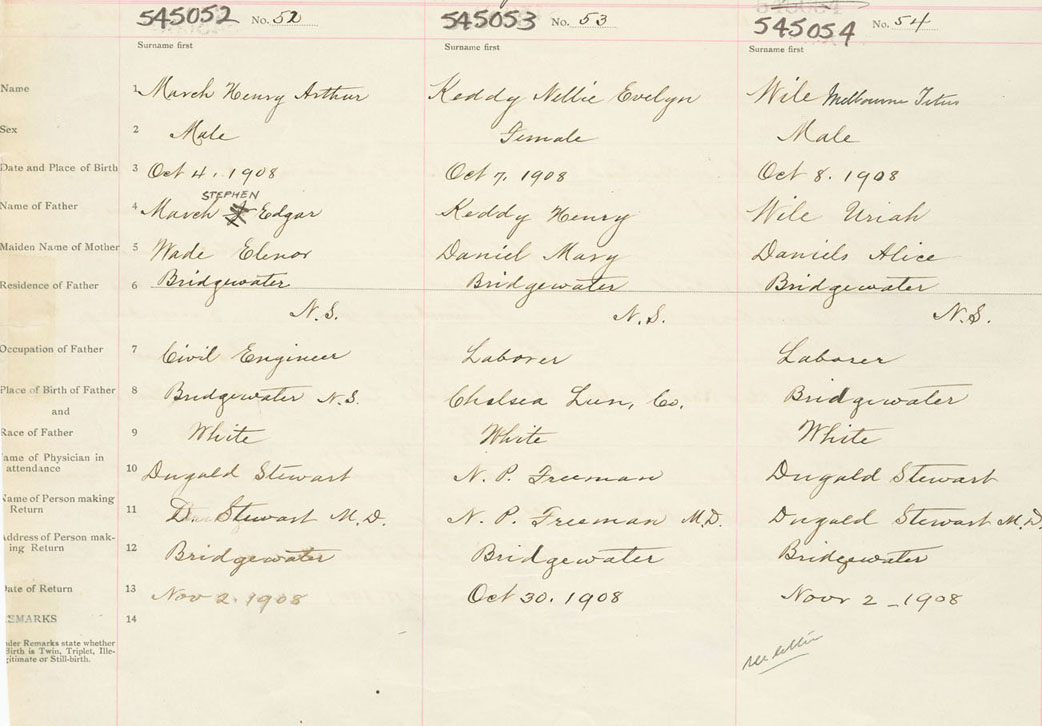 545052 No. 52 545053 No. 53 545054 No. 54
Surname first Surname first Surname first
Name 1 March Henry Arthur Keddy Nellie Evelyn Wile Melbourne Titus
Sex 2 Male Female Male
Date and Place of Birth 3 Oct 4. 1908 Oct 7. 1908 Oct 8. 1908
STEPHEN
Name of Father 4 March Edgar Keddy Henry Wile Uriah
Maiden Name of Mother 5 Wade Elenor Daniel Mary Daniels Alice
Residence of Father 6 Bridgewater Bridgewater Bridgewater
N.S. N.S. N.S.
Occupation of Father 7 Civil Engineer Laborer Laborer
Place of Birth of Father 8 Bridgewater N.S. Chelsea Lun, Co. Bridgewater
and
Race of Father 9 White White White
ame of Physician in
attendance 10 Dugald Stewart N. P. Freeman Dugald Stewart
Name of Person making
Return 11 D. Stewart M.D. N. P. Freeman M.D. Dugald Stewart M.D.
Address of Person mak-
ing Return 12 Bridgewater Bridgewater Bridgewater
Date of Return 13 Nov 2. 1908 Oct 30. 1908 Novr 2 - 1908
EMARKS 14
nder Remarks state whether
Birth is Twin, Triplet, Ille-
gitimate or Still-birth.